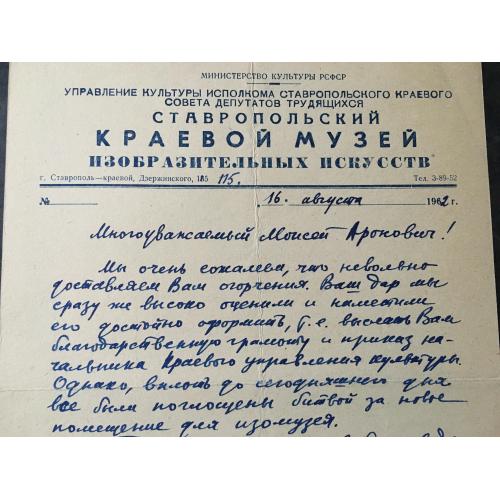 МИНИСТЕРСТВО КУЛЬТУРЫ РСФСР
УПРАВЛЕНИЕ КУЛЬТУРЫ ИСПОЛКОМА СТАВРОПОЛЬСКОГО КРАЕВОГО
СОВЕТА ДЕПУТАТОВ ТРУДЯЩИХСЯ
СТАВРОПОЛЬСКИЙ
КРАЕВОЙ МУЗЕЙ
ИЗОБРАЗИТЕЛЬНЫХ ИСКУССТВ
г. Ставрополь—краевой, Дзержинского, 115. Тел. 3-89-52
№ 16. августа 1962 г.
Многоуважаемый Моисей Аронович!
Мы очень сожалеем, что невольно
доставляем Вам огорчения. Ваш дар мы
сразу же высоко оценили и наметили
его достойно оформить, т.е. выслать Вам
благодарственную грамоту и приказ на-
чальника Краевого управления культуры.
Однако, вплоть до сегодняшнего дня
все были поглощены битвой за новое
помещение для изомузея.